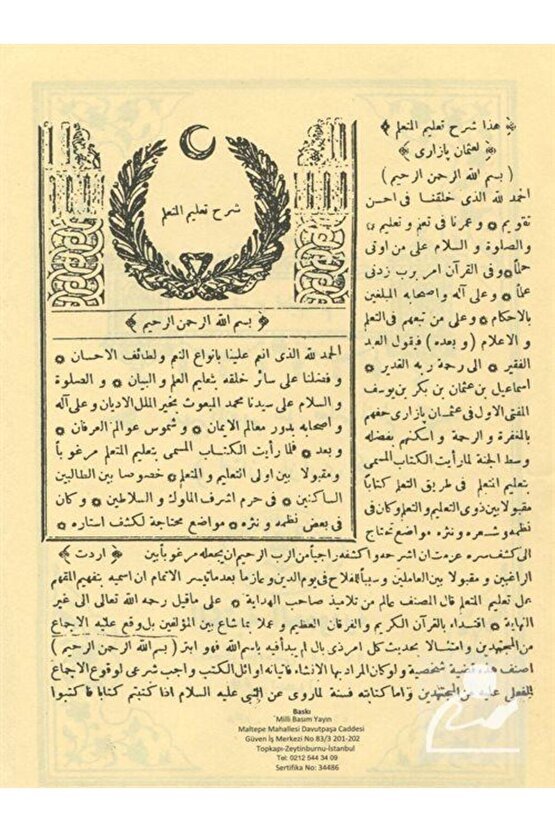 ﴿ هذا شرح تعليم المتعلم ﴾
﴿ لعثمان پازارى ﴾
( بسم الله الرحمن الرحيم )
الحمد لله الذى خلقنا فى احسن
تقويم ۞ وعمرنا فى تعلم و تعليم ۞
والصلوة و السلام على من اوتى
حلما ۞ وفى القرآن امر برب زدنى
علما ۞ وعلى آله واصحابه المبلغين
بالاحكام ۞ وعلى من تبعهم فى التعلم
و الاعلام ( و بعده ) فيقول العبد
الفقير ۞ الى رحمة ربه القدير ۞
اسماعيل بن عثمان بن بكر بن يوسف
المفتى الاول فى عثمان پازارى حفهم
بالمغفرة و الرحمة و اسكنهم بفضله
وسط الجنة لما رأيت الكتاب المسمى
بتعليم المتعلم فى طريق التعلم كتابا
مقبولا بين ذوى التعليم والتعلم وكان فى
نظمه و شعره و نثره مواضع تحتاج
شرح تعليم المتعلم
﴿ بسم الله الرحمن الرحيم ﴾
الحمد لله الذى انعم علينا بانواع النعم ولطائف الاحسان ۞
و فضلنا على سائر خلقه بتعليم العلم و البيان ۞ و الصلوة
و السلام على سيدنا محمد المبعوث بخير الملل الاديان وعلى آله
و اصحابه بدور معالم الايمان ۞ و شموس عوالم العرفان ۞
و بعد ۞ فلما رأيت الكتاب المسمى بتعليم المتعلم مرغوبا
ومقبولا بين اولى التعليم و المتعلم ۞ خصوصا بين الطالبين
الساكنين ۞ فى حرم اشرف الملوك و السلاطين ۞ وكان
فى بعض نظمه و نثره ۞ مواضع محتاجة لكشف استاره ۞
الى كشف سره عزمت ان اشرحه واكشفه راجيا من الرب الرحيم ان يجعله مرغوبا بين ﴿ اردت ﴾
الراغبين و مقبولا بين العاملين وسببا للفلاح فى يوم الدين وعازما بعد ما تيسر الاتمام ان اسميه بتفهيم المتفهم
على تعليم المتعلم قال المصنف عالم من تلاميذ صاحب الهداية ۞ على ماقيل رحمه الله تعالى الى غير
النهاية ۞ اقتداء بالقرآن الكريم والفرقان العظيم و عملا بما شاع بين المؤلفين بل وقع عليه الاجماع
من المجتهدين وامتثالا بحديث كل امر ذى بال لم يبدأ فيه باسم الله فهو ابتر ( بسم الله الرحمن الرحيم )
اصنف هذه قضية شخصية و لوكان المراد بها الانشاء فاتيانه اوائل الكتب واجب شرعى لوقوع الاجماع
الفعلى عليه من المجتهدين واما كتابته فسنة لماروى عن النبى عليه السلام اذا كتبتم كتابا فاكتبوا
Baskı
Milli Basım Yayın
Maltepe Mahallesi Davutpaşa Caddesi
Güven İş Merkezi No 83/3 201-202
Topkapı-Zeytinburnu-İstanbul
Tel: 0212 544 34 09
Sertifika No: 34486